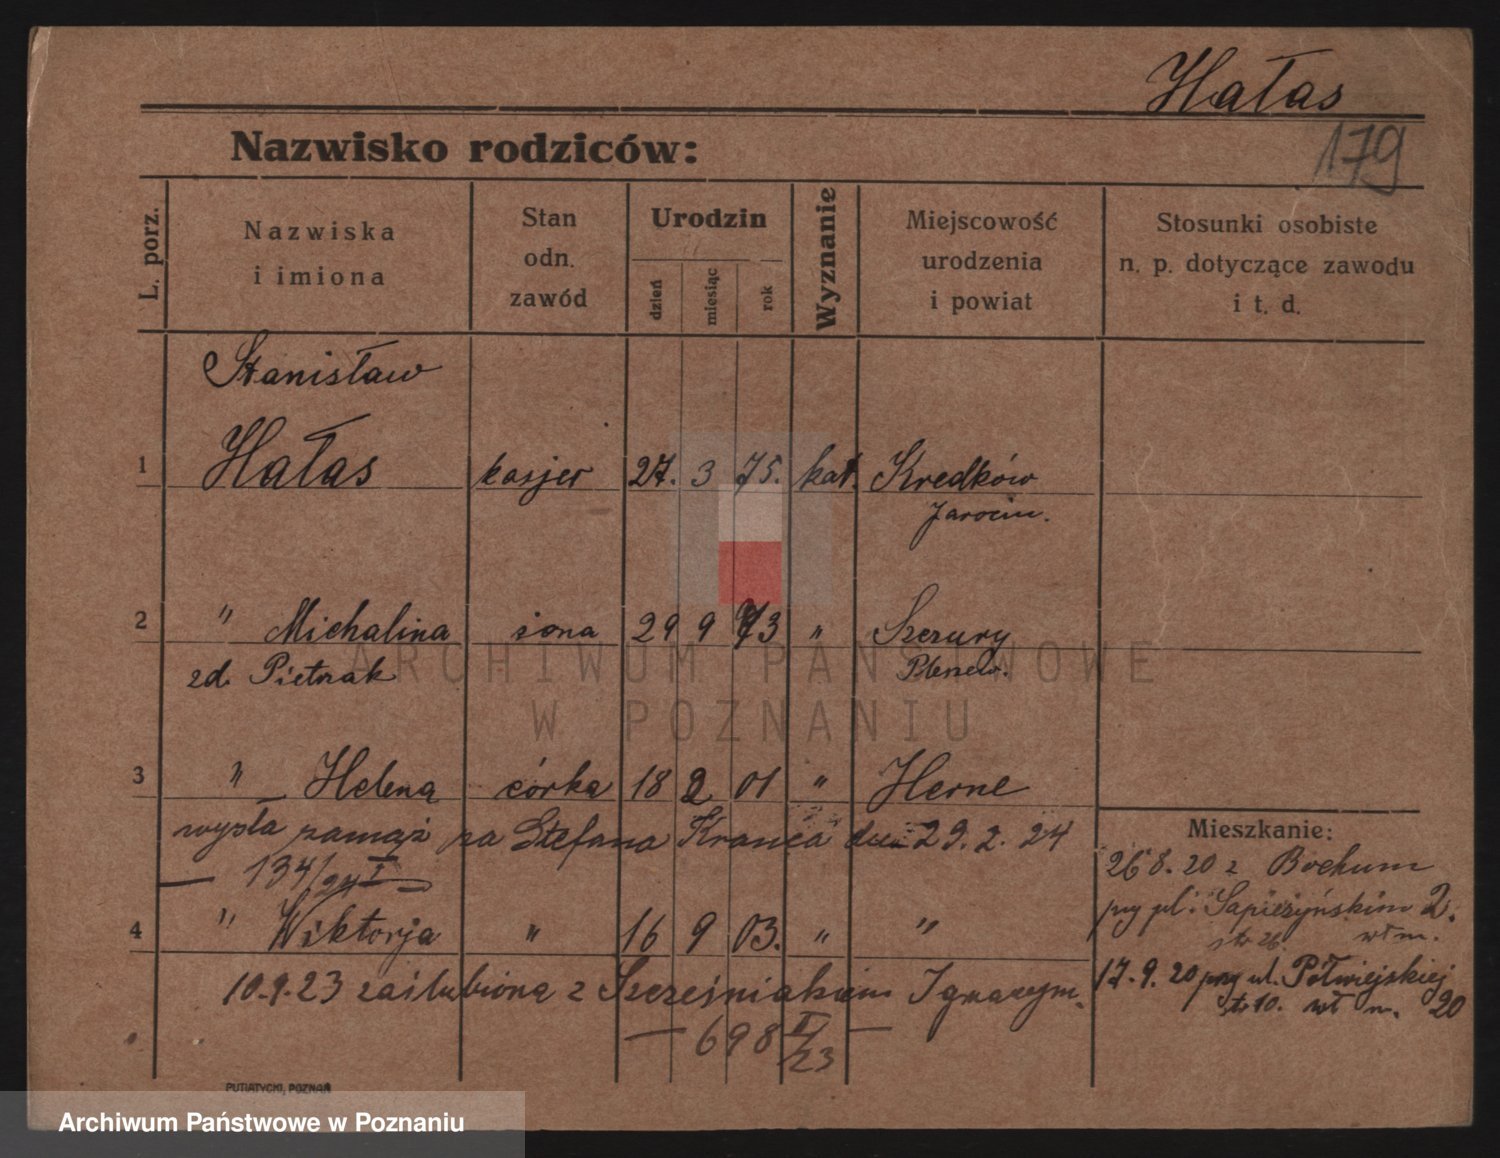 Hałas
179
Nazwisko rodziców:
L. porz.
Nazwiska
i imiona
Stan
odn.
zawód
Urodzin
dzień
miesiąc
rok
Wyznanie
Miejscowość
urodzenia
i powiat
Stosunki osobiste
n. p. dotyczące zawodu
i t. d.
Stanisław
1 Hałas kasjer 27. 3 75. kat. Kredków
Jarocin.
2 " Michalina żona 29 9 73 " Szczury
zd. Pietrzak Pleszew.
3 " Helena córka 18 2 01 " Herne
wyszła zamąż za Stefana dnia 29. 2. 24
— 134/24 I —
4 " Wiktorja " 16 9 03. " "
10.9.23 zaślubiona z Szcześniakiem Ignacym.
— 698 II/23 —
Mieszkanie:
26 8. 20 z Bochum
przy pl. Sapieżyńskim 2.
str 26. wł m.
17. 9. 20 przy ul. Półwiejskiej
str 10. wł m. 20
PUTIATYCKI, POZNAŃ
ARCHIWUM PAŃSTWOWE
W POZNANIU
Archiwum Państwowe w Poznaniu